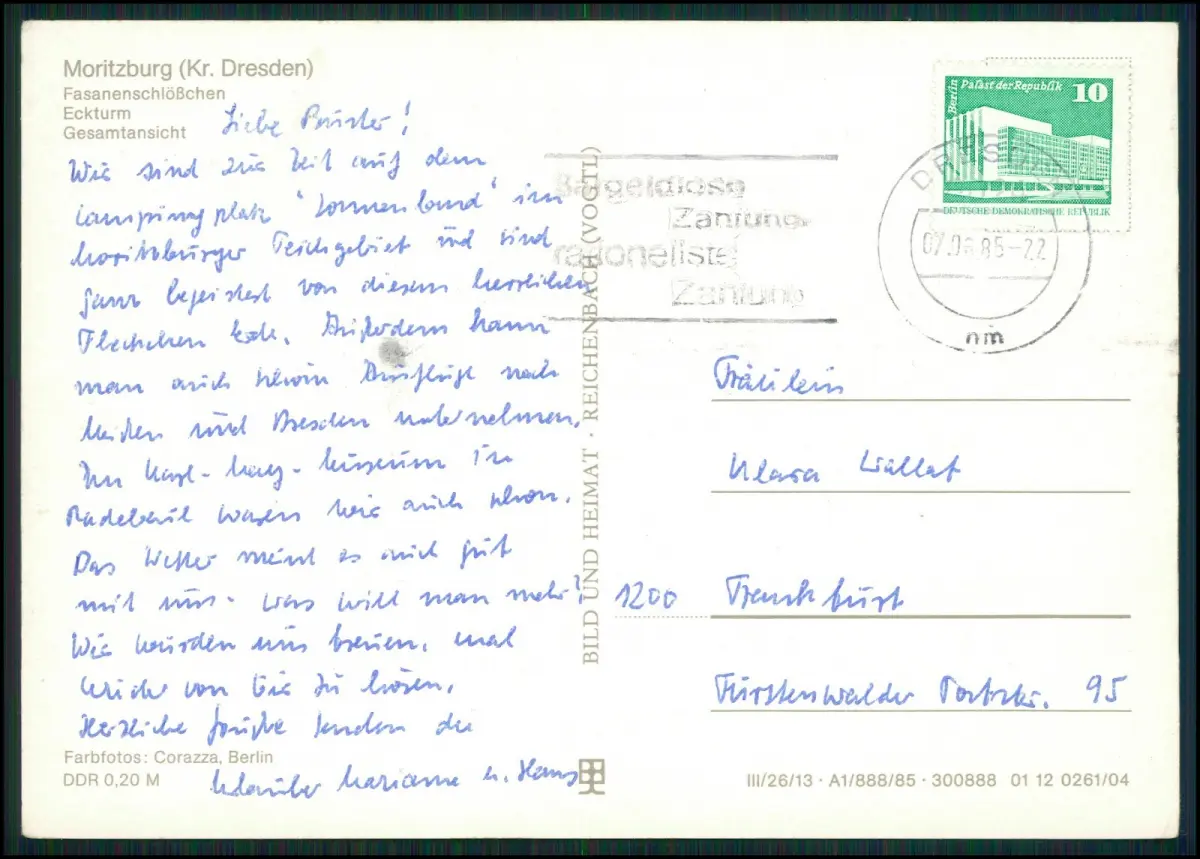 Moritzburg (Kr. Dresden)
Fasanenschlößchen
Eckturm
Gesamtansicht
Liebe
Wir sind zur Zeit auf dem
Campingplatz "Sonnenland" im
Moritzburger Teichgebiet und sind
ganz begeistert von diesem herrlichen
Fleckchen Erde. Außerdem kann
man auch schön Ausflüge nach
Meißen und Dresden unternehmen.
Im Karl-May-Museum in
Radebeul waren wir auch schon.
Das Wetter meint es auch gut
mit uns - was will man mehr?
Wir würden uns freuen, mal
wieder von Dir zu hören.
Herzliche Grüße senden die
Urlauber Marianne u. Hans
Farbfotos: Corazza, Berlin
DDR 0,20 M
BILD UND HEIMAT · REICHENBACH (VOGTL)
Bargeldlose
Zahlung-
rationellste
Zahlung
Berlin Palast der Republik 10
DEUTSCHE DEMOKRATISCHE REPUBLIK
DRESDEN
07.06.85-22
nm
Fräulein
Klara
1200 Frankfurt
Fürstenwalder Poststr. 95
III/26/13 · A1/888/85 · 300888 01 12 0261/04